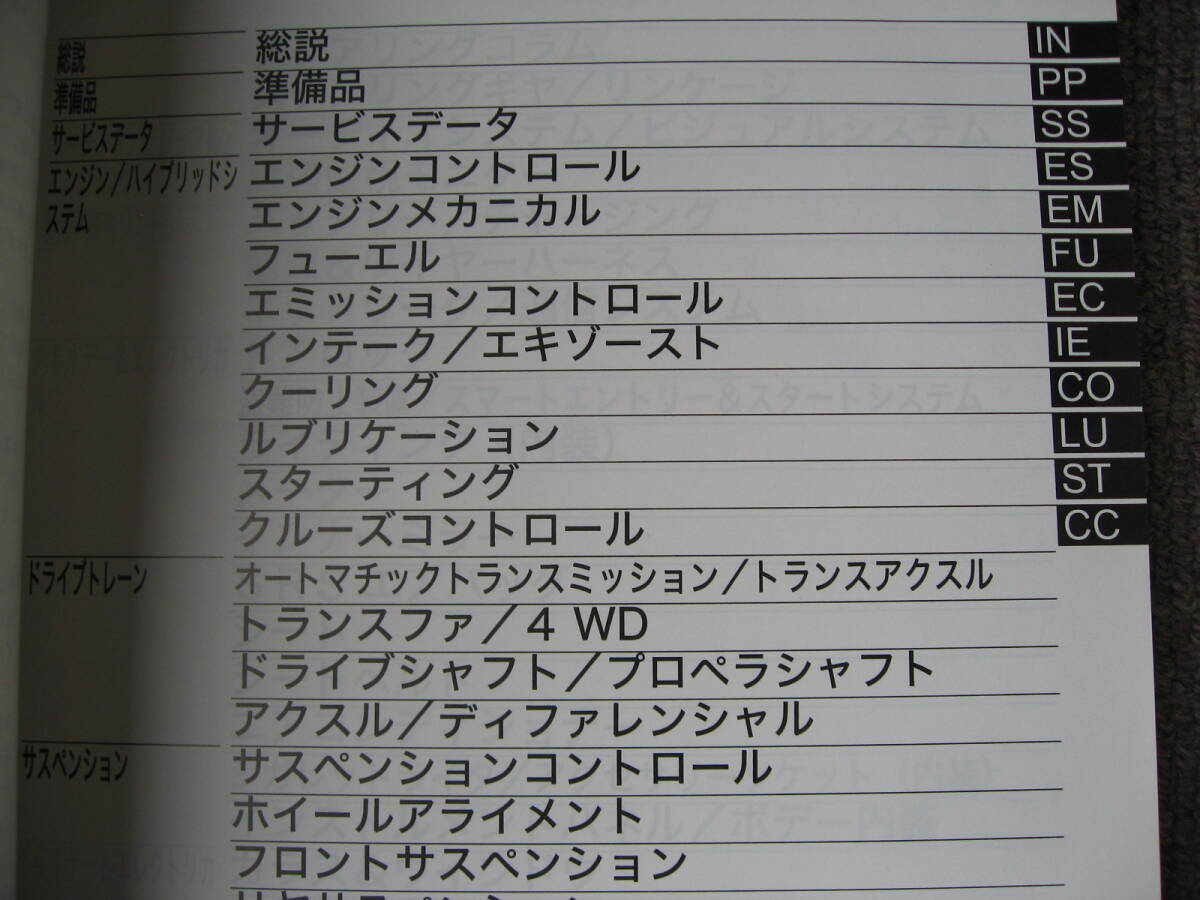 総説 総説 IN
準備品 準備品 PP
サービスデータ サービスデータ SS
エンジン/ハイブリッドシステム エンジンコントロール ES
エンジンメカニカル EM
フューエル FU
エミッションコントロール EC
インテーク/エキゾースト IE
クーリング CO
ルブリケーション LU
スターティング ST
クルーズコントロール CC
ドライブトレーン オートマチックトランスミッション/トランスアクスル
トランスファ/4 WD
ドライブシャフト/プロペラシャフト
アクスル/ディファレンシャル
サスペンション サスペンションコントロール
ホイールアライメント
フロントサスペンション